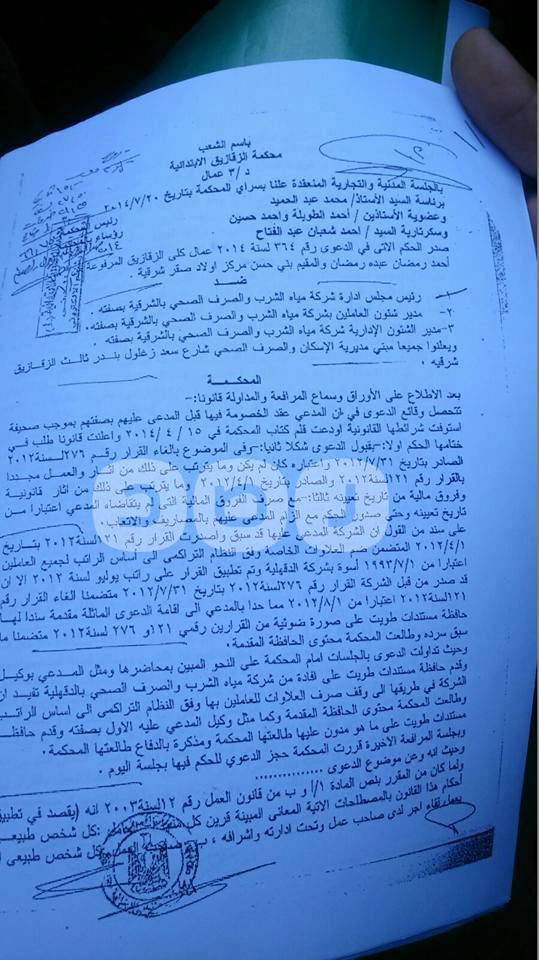 باسم الشعب
محكمة الزقازيق الابتدائية
د/٣ عمال
بالجلسة المدنية والتجارية المنعقدة علنا بسراي المحكمة بتاريخ ٢٠١٤/٧/٢٠
برئاسة السيد الأستاذ/ محمد عبد الحميد
وعضوية الأستاذين / أحمد الطويلة واحمد حسين
وسكرتارية السيد / احمد شعبان عبد الفتاح
صدر الحكم الآتى فى الدعوى رقم ٣٦٤ لسنة ٢٠١٤ عمال كلى الزقازيق المرفوعة
أحمد رمضان عبده رمضان والمقيم بني حسن مركز اولاد صقر شرقية .
ضد
١- رئيس مجلس ادارة شركة مياه الشرب والصرف الصحي بالشرقية بصفته .
٢- مدير شئون العاملين بشركة مياه الشرب والصرف الصحي بالشرقية بصفته .
٣-مدير الشئون الإدارية شركة مياه الشرب والصرف الصحي بالشرقية بصفته .
ويعلنوا جميعا بمبني مديرية الإسكان والصرف الصحي شارع سعد زغلول بندر ثالث الزقازيق
شرقيه .
المحكمة
بعد الاطلاع على الأوراق وسماع المرافعة والمداولة قانونا :-
تتحصل وقائع الدعوى في ان المدعي عقد الخصومة فيها قبل المدعى عليهم بصفتهم بموجب صحيفة
استوفت شرائطها القانونية اودعت قلم كتاب المحكمة في ١٥ / ٤ / ٢٠١٤ واعلنت قانونا طلب في
ختامها الحكم اولا:-بقبول الدعوى شكلا ثانيا:-وفى الموضوع بالغاء القرار رقم ٢٧٦ لسنة٢٠١٢
الصادر بتاريخ ٢٠١٢/٧/٣١ واعتباره كان لم يكن وما يترتب على ذلك من اثار والعمل مجددا
بالقرار رقم ١٢١ لسنة٢٠١٢ والصادر بتاريخ ٢٠١٢/٤/١ وما يترتب على ذلك من آثار قانونية
وفروق مالية من تاريخ تعيينه ثالثا:-ب صرف الفروق المالية التى لم يتقاضاه المدعي اعتبارا من
تاريخ تعيينه وحتى صدور الحكم مع الزام المدعى عليهم بالمصاريف والاتعاب.
على سند من القول ان الشركة المدعى عليها قد سبق واصدرت القرار رقم ١٢١ لسنة٢٠١٢ بتاريخ
٢٠١٢/٤/١ المتضمن ضم العلاوات الخاصة وفق النظام التراكمى الى اساس الراتب لجميع العاملين
اعتبارا من ١٩٩٣/٧/١ أسوة بشركة الدقهلية وتم تطبيق القرار على راتب يوليو لسنة ٢٠١٢ الا ان
قد صدر من قبل الشركة القرار رقم ٢٧٦ لسنة ٢٠١٢ بتاريخ ٢٠١٢/٧/٣١ متضمنا الغاء القرار رقم
١٢١ لسنة٢٠١٢ اعتبارا من ٢٠١٢/٨/١ مما حدا بالمدعي الى اقامة الدعوى الماثلة مقدمة سندا لها
حافظة مستندات طويت على صورة ضوئية من القرارين رقمي ١٢١ و ٢٧٦ لسنة٢٠١٢ متضمنا ما
سبق سرده وطالعت المحكمة محتوى الحافظة المقدمة .
وحيث تداولت الدعوى بالجلسات امام المحكمة على النحو المبين بمحاضرها ومثل المدعي بوكيل
وقدم حافظة مستندات طويت على افادة من شركة مياه الشرب والصرف الصحي بالدقهلية تفيد ان
الشركة في طريقها الى وقف صرف العلاوات للعاملين بها وفق النظام التراكمى الى اساس الراتب
وطالعت المحكمة محتوى الحافظة المقدمة وكما مثل وكيل المدعي عليه الاول بصفته وقدم حافظة
مستندات طويت على ما هو مدون عليها طالعتها المحكمة ومذكرة بالدفاع طالعتها المحكمة .
وبجلسة المرافعة الاخيرة قررت المحكمة حجز الدعوي للحكم فيها بجلسة اليوم .
وحيث انه وعن موضوع الدعوى ..............
ولما كان من المقرر بنص المادة ١/أ و ب من قانون العمل رقم ١٢ لسنة٢٠٠٣ انه (يقصد في تطبيق
أحكام هذا القانون بالمصطلحات الآتية المعانى المبينة قرين كل منها العامل :كل شخص طبيعي
يعمل لقاء اجر لدى صاحب عمل وتحت ادارته واشرافه ، ب- صاحب العمل :كل شخص طبيعى